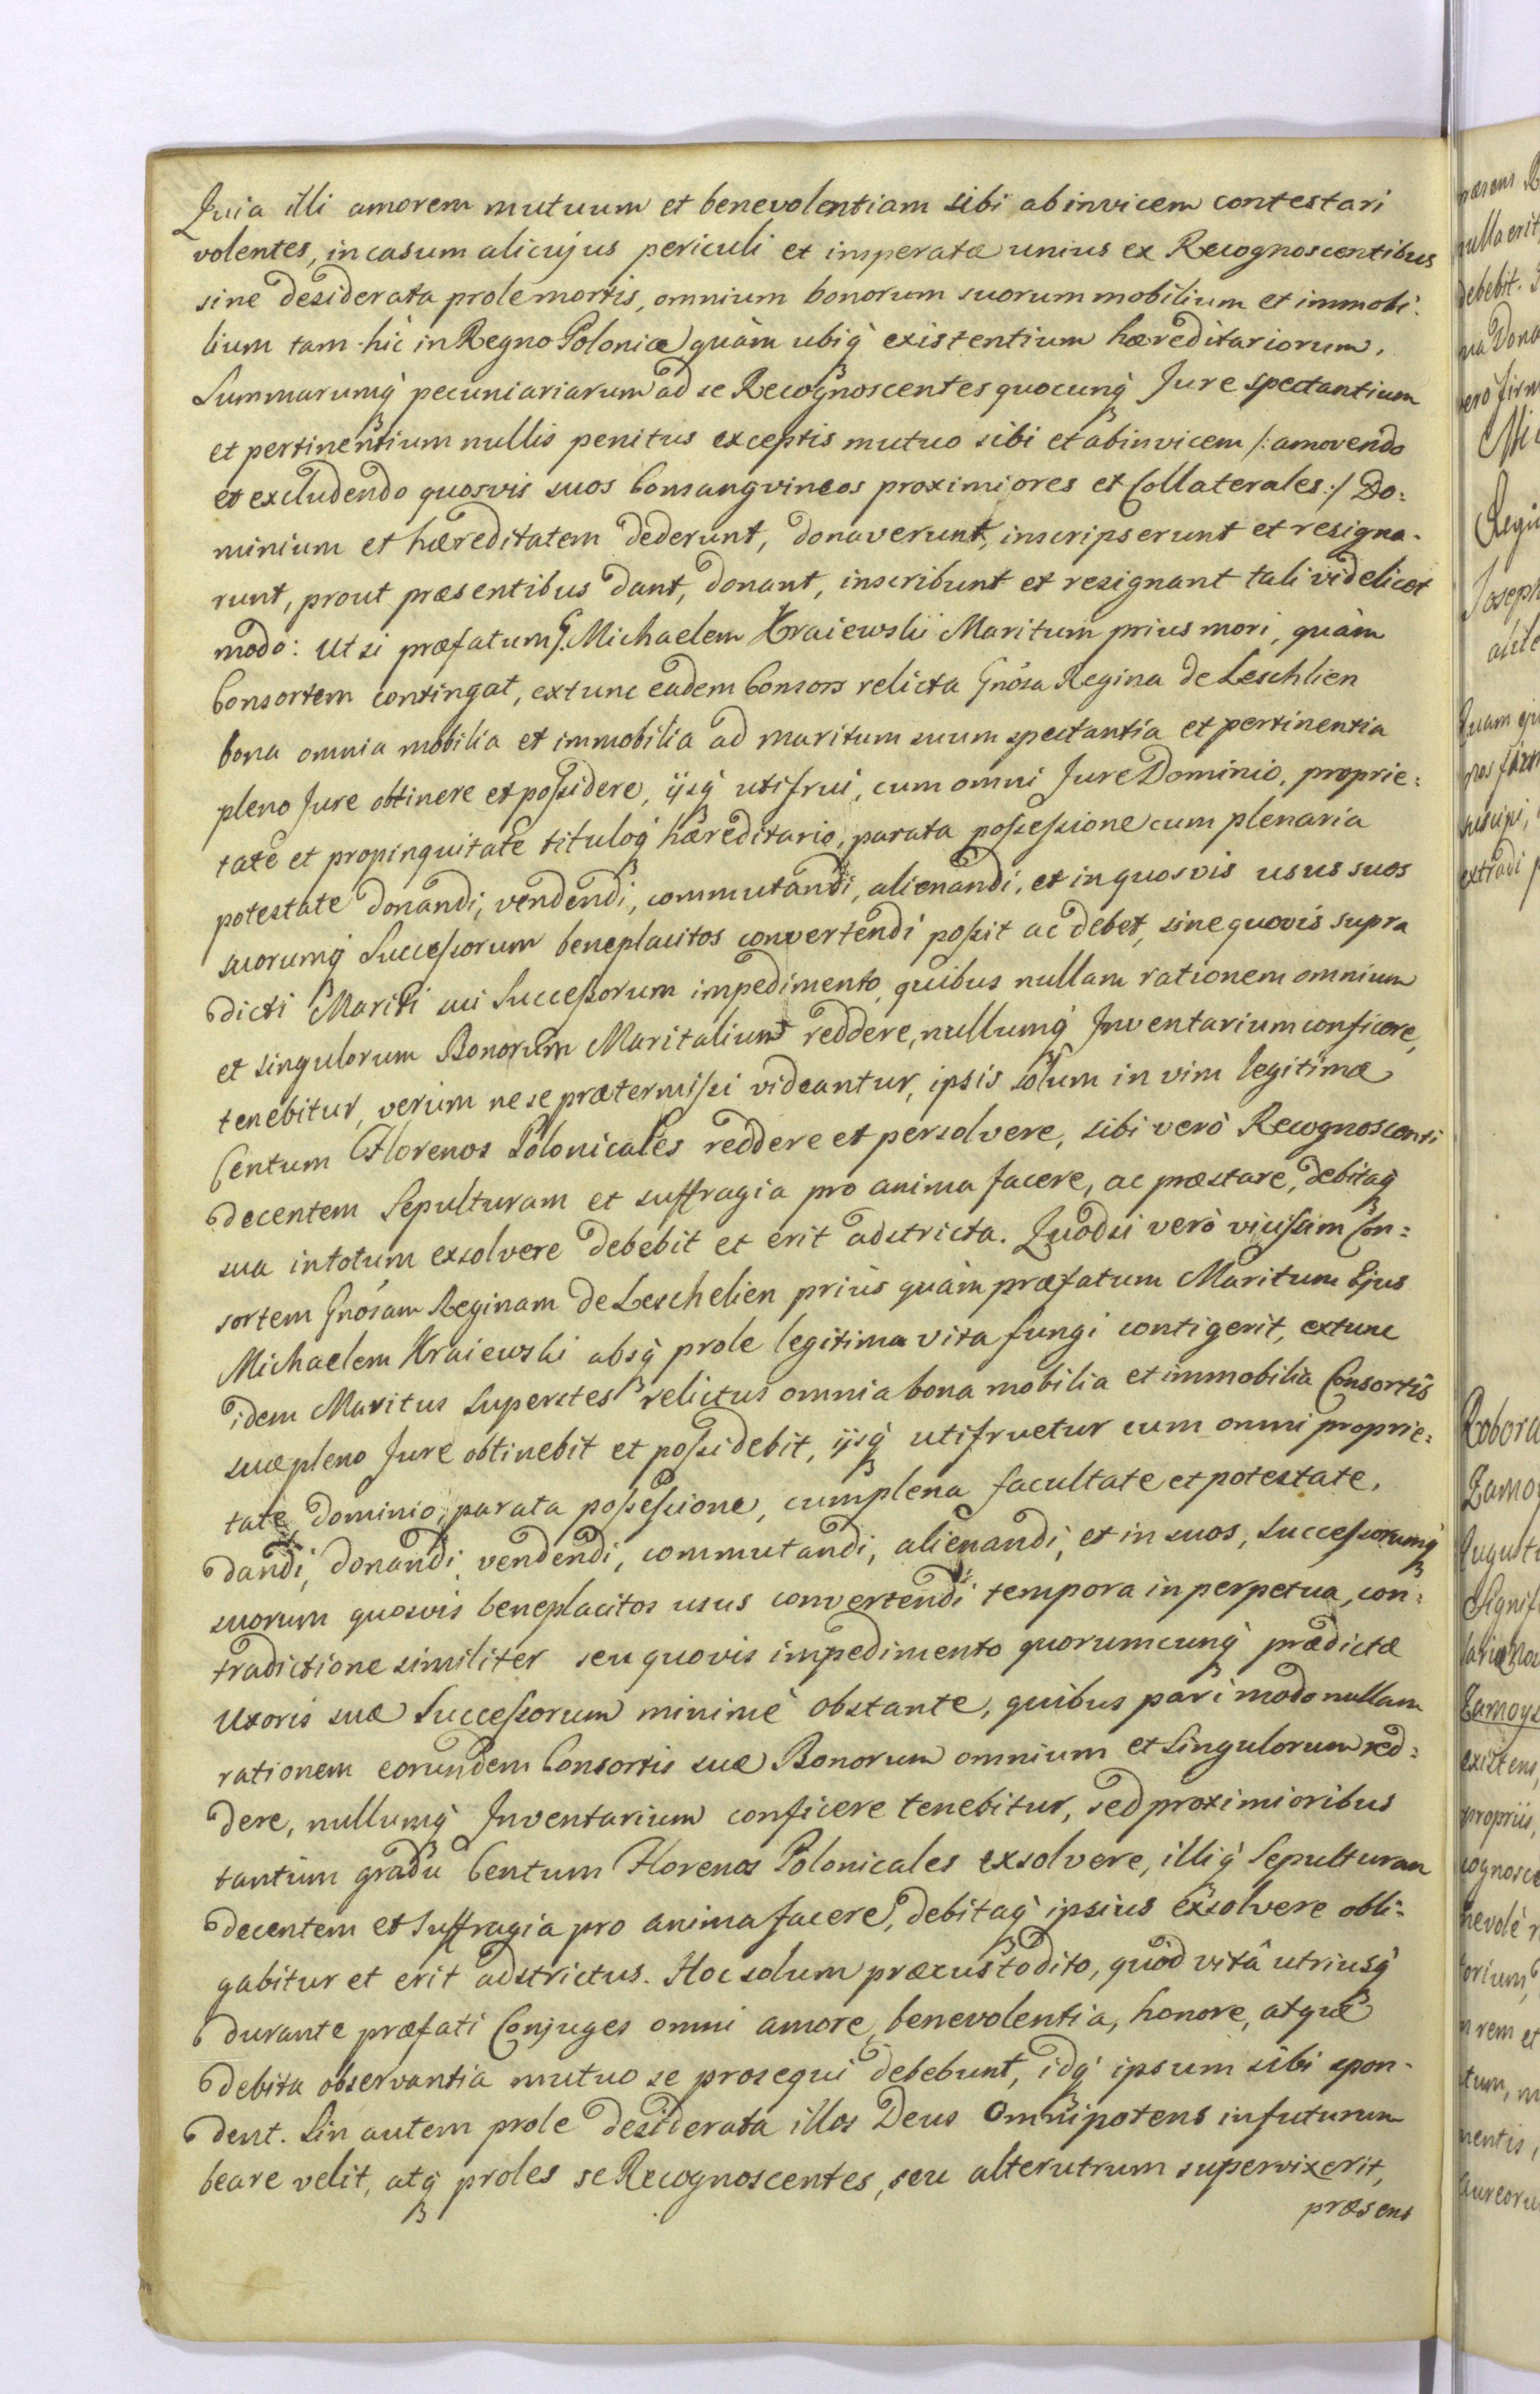 Quia illi amorem mutuum et benevolentiam sibi abinvicem contestari
volentes, in casum alicujus periculi et imperatæ unius ex Recognoscentibus
sine desiderata prole mortis, omnium bonorum suorum mobilium et immobi:
lium tam hic in Regno Poloniæ quàm ubiq́ existentium hæreditariorum,
Summarumq́ pecuniariarum ad se Recognoscentes quocunq́ Jure spectantium
et pertinentium nullis penitus exceptis mutuo sibi et abinvicem /: amovendo
et excludendo quosvis suos Consangvineos proximiores et Collaterales :/ Do:
minium et hæreditatem dederunt, donaverunt, inscripserunt et resigna-
runt, prout præsentibus dant, donant, inscribunt et resignant tali videlicet
modo: Ut si præfatum G. Michaelem Kraiewski Maritum prius mori, quàm
Consortem contingat, extunc eadem Consors relicta Gnósa Regina de Leschlien
bona omnia mobilia et immobilia ad maritum suum spectantia et pertinentia
pleno Jure obtinere et possidere, ijsq́ utifrui, cum omni Jure Dominio, proprie:
tate et propinquitate tituloq́ hæreditario, parata possessione cum plenaria
potestate donandi, vendendi, commutandi, alienandi, et in quosvis usus suos
suorumq́ Successorum beneplacitos convertendi possit ac debet, sine quovis supra
dicti Mariti sui Successorum impedimento, quibus nullam rationem omnium
et singulorum Bonorum Maritalium reddere, nullumq́ Inventarium conficere,
tenebitur, verùm ne se prætermissi videantur, ipsis solum in vim legitimæ
Centum Florenos Polonicales reddere et persolvere, sibi verò Recognoscenti
decentem Sepulturam et suffragia pro anima facere, ac præstare, debitaq́
sua in totum exsolvere debebit et erit adstricta. Quodsi verò vicissim Con:
sortem Gnósam Reginam de Leschelien priùs quàm præfatum Maritum Ejus
Michaelem Kraiewski absq́ prole legitima vita fungi contigerit, extunc
idem Maritus Superstes relictus omnia bona mobilia et immobilia Consortis
suæ pleno Jure obtinebit et possidebit, ijsq́ utifruetur cum omni proprie:
tate, dominio, parata possessione, cum plena facultate et potestate,
dandi, donandi, vendendi, commutandi, alienandi, et in suos, Successorumq́
suorum quosvis beneplacitos usus convertendi tempora in perpetua, con:
tradictione similiter seu quovis impedimento quorumcunq́ prædictæ
Uxoris suæ Successorum minimè obstante, quibus pari modo nullam
rationem eorundem Consortis suæ Bonorum omnium et Singulorum red:
dere, nullumq́ Inventarium conficere tenebitur, sed proximioribus
tantùm gradu Centum Florenos Polonicales exsolvere, illiq́ Sepulturam
decentem et Suffragia pro anima facere, debitaq́ ipsius exsolvere obli:
gabitur et erit adstrictus. Hoc solum præcustodito, quòd vitâ utriusq́
durante præfati Conjuges omni amore, benevolentia, honore, atque
debita observantia mutuo se prosequi debebunt, idq́ ipsum sibi spon-
dent. Sin autem prole desiderata illos Deus Omnipotens in futurum
beare velit, atq́ proles se Recognoscentes, seu alterutrum supervixerit,
præsens